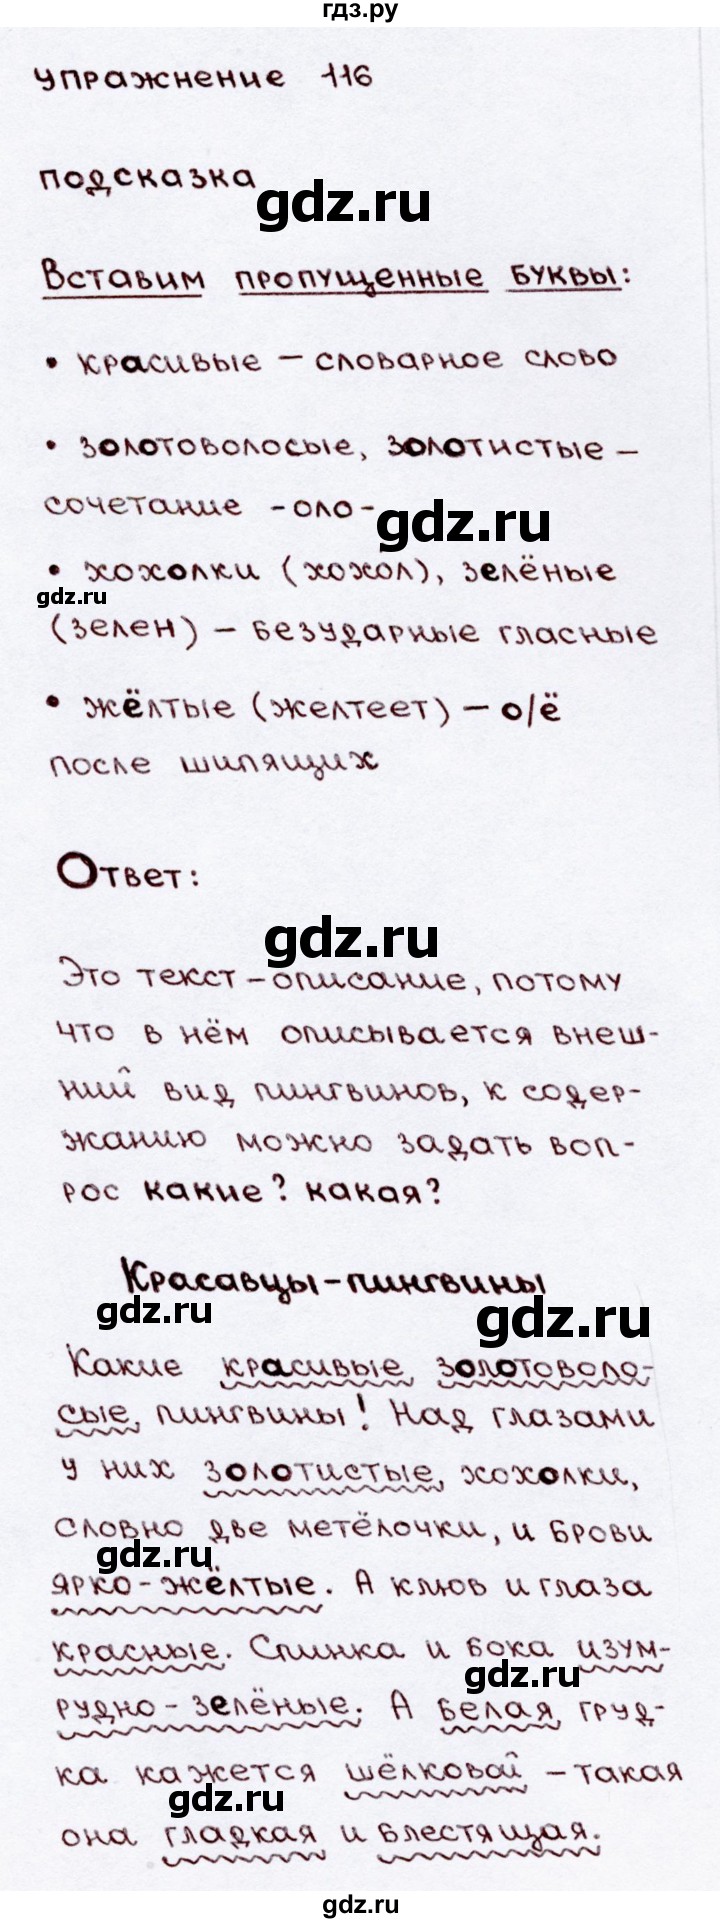 гдз.ру
упражнение 116
подсказка
gdz.ru
Вставим пропущенные буквы:
• красивые – словарное слово
• золотоволосые, золотистые –
сочетание -оло-
gdz.ru
• хохолки (хохол), зелёные
gdz.ru
(зелен) – безударные гласные
• жёлтые (желтеет) – о/ё
после шипящих
Ответ:
gdz.ru
Это текст-описание, потому
что в нём описывается внеш-
ний вид пингвинов, к содер-
жанию можно задать воп-
рос какие? какая?
Красавцы-пингвины
gdz.ru
gdz.ru
Какие красивые, золотоволо-
сые, пингвины! Над глазами
у них золотистые, хохолки,
словно две метёлочки, и брови
gdz.ru
ярко-жёлтые. А клюв и глаза
красные. Спинка и бока изум-
gdz.ru
рудно-зелёные. А белая груд-
ка кажется шёлковой – такая
gdz.ru
она гладкая и блестящая.
gdz.ru